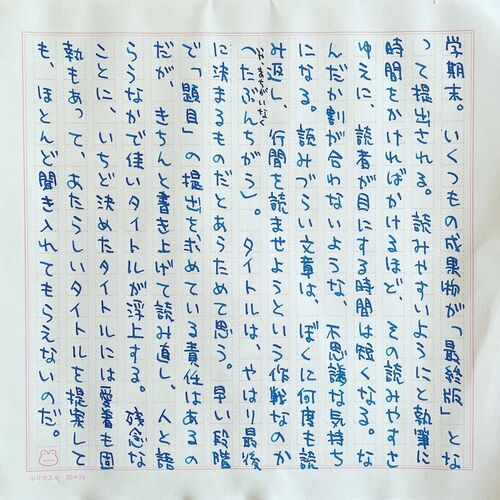 学期末。いくつもの成果物が「最終版」とな
って提出される。読みやすいようにと執筆に
時間をかければかけるほど、その読みやすさ
ゆえに、読者が目にする時間は短くなる。な
んだか割が合わないような、不思議な気持ち
になる。読みづらい文章は、ぼくに何度も読
み返し、行間を読ませようという作戦なのか
やまちがいなく
（たぶんちがう）。タイトルは、やはり最後
に決まるものだとあらためて思う。早い段階
で「題目」の提出を求めている責任はあるの
だが、きちんと書き上げて読み直し、人と語
らうなかで佳いタイトルが浮上する。残念な
ことに、いちど決めたタイトルには愛着も固
執もあって、あたらしいタイトルを提案して
も、ほとんど聞き入れてもらえないのだ。
ふりカエル 20×15